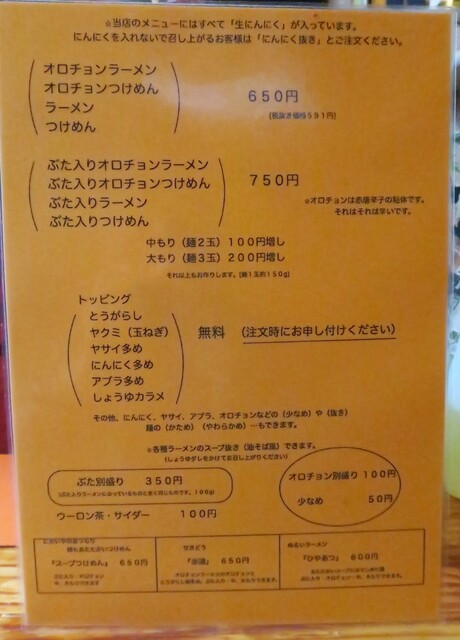 ☆当店のメニューにはすべて「生にんにく」が入っています。
にんにくを入れないで召し上がるお客様は「にんにく抜き」とご注文ください。
オロチョンラーメン
オロチョンつけめん
ラーメン
つけめん
650円
(税抜き価格591円)
ぶた入りオロチョンラーメン
ぶた入りオロチョンつけめん
ぶた入りラーメン
ぶた入りつけめん
750円
☆オロチョンは赤唐辛子の粉体です。
それはそれは辛いです。
中もり（麺2玉）100円増し
大もり（麺3玉）200円増し
それ以上もお作りします。(麺1玉約150g)
トッピング
とうがらし
ヤクミ（玉ねぎ）
ヤサイ多め
にんにく多め
アブラ多め
しょうゆカラメ
無料 （注文時にお申し付けください）
その他、にんにく、ヤサイ、アブラ、オロチョンなどの（少なめ）や（抜き）
麺の（かため）（やわらかめ）…もできます。
☆各種ラーメンのスープ抜き（油そば風）できます。
(しょうゆダレをかけてお召し上がりください)
ぶた別盛り 350円
(ぶた入りラーメンに入っているものと全く同じものです。100g)
オロチョン別盛り 100円
少なめ 50円
ウーロン茶・サイダー 100円
『スープつけめん』 650円
ぶた入り オロチョン
650円
ぬるいラーメン
『ひやあつ』 600円